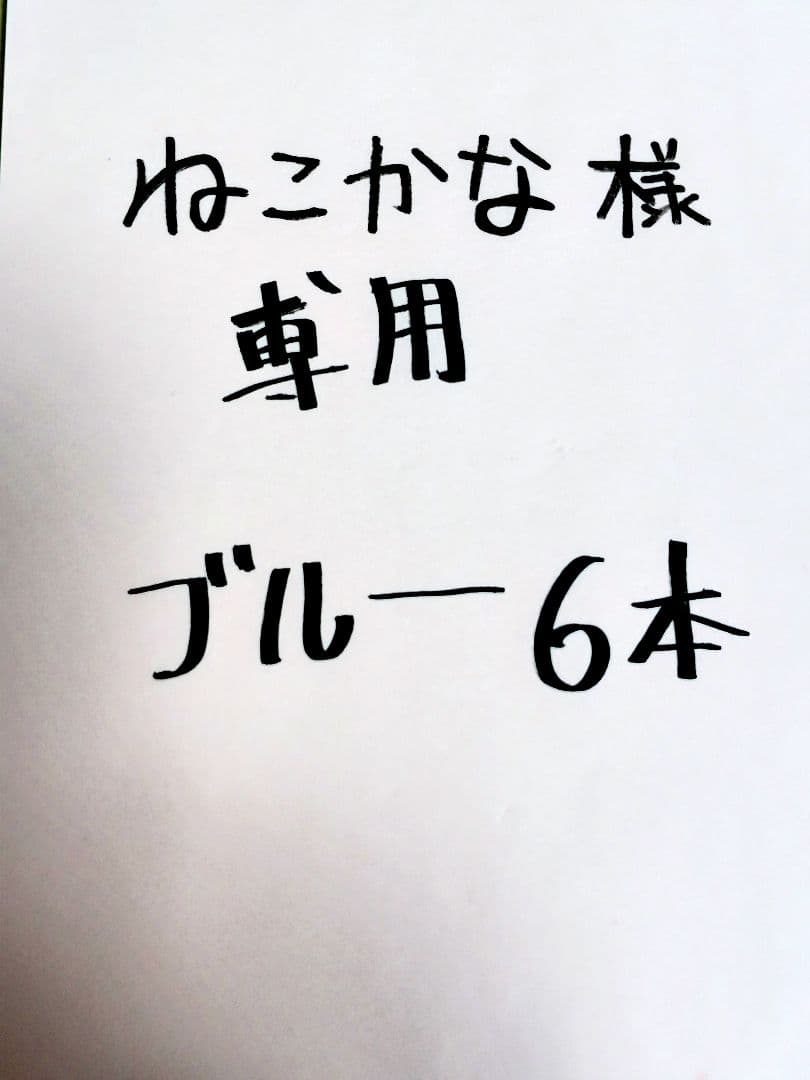 ねこかな様
専用
ブルー6本